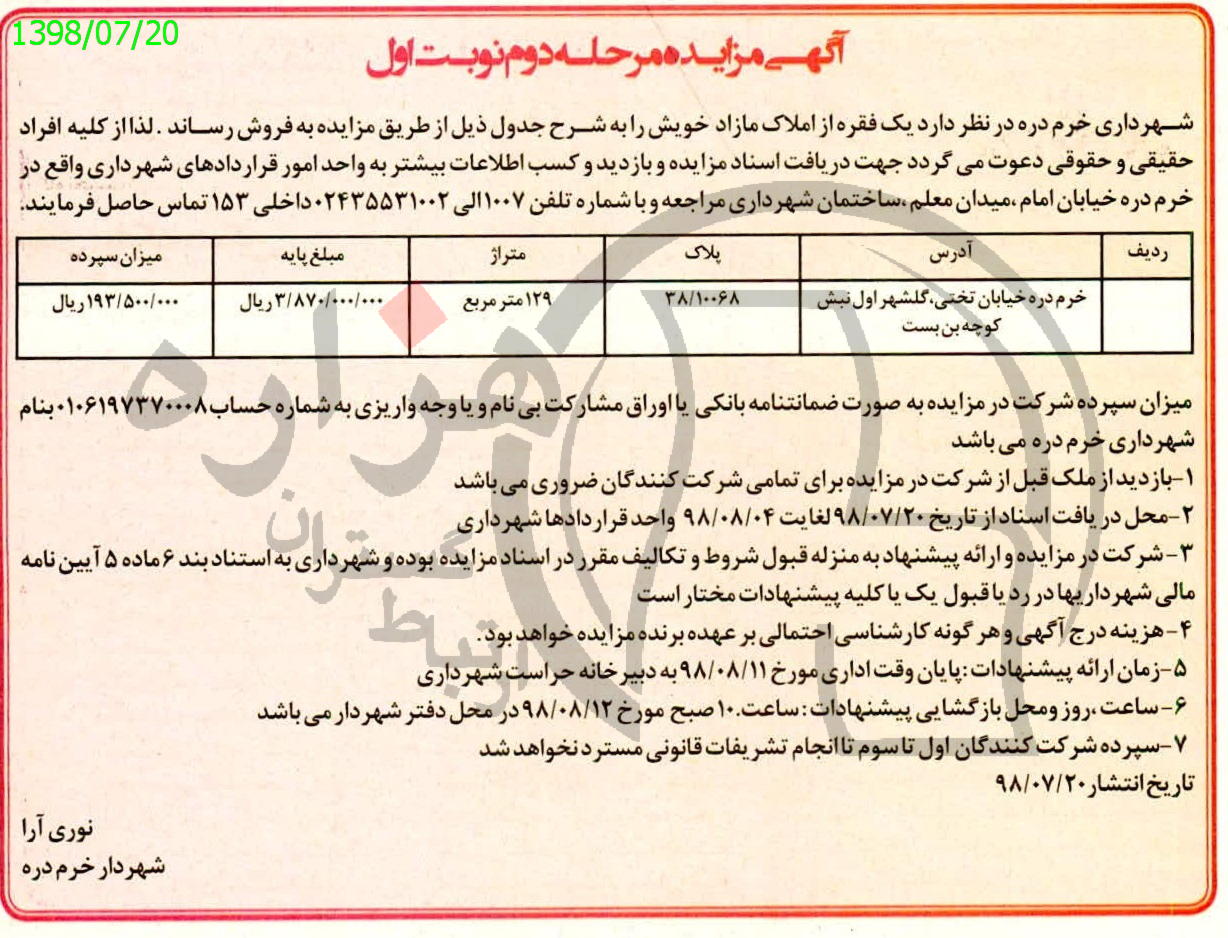 1398/07/20
آگهی مزایده مرحله دوم نوبت اول
شهرداری خرم دره در نظر دارد یک فقره از املاک مازاد خویش را به شرح جدول ذیل از طریق مزایده به فروش رساند . لذا از کلیه افراد
حقیقی و حقوقی دعوت می گردد جهت دریافت اسناد مزایده و بازدید و کسب اطلاعات بیشتر به واحد امور قراردادهای شهرداری واقع در
خرم دره خیابان امام ،میدان معلم ،ساختمان شهرداری مراجعه و با شماره تلفن ۱۰۰۷الی ۰۲۴۳۵۵۳۱۰۰۲داخلی ۱۵۳ تماس حاصل فرمایند.
ردیف آدرس پلاک متراژ مبلغ پایه میزان سپرده
خرم دره خیابان تختی،گلشهر اول نبش ۳۸/۱۰۰۶۸ ۱۲۹ متر مربع ۳/۸۷۰/۰۰۰/۰۰۰ ریال ۱۹۳/۵۰۰/۰۰۰ ریال
کوچه بن بست
میزان سپرده شرکت در مزایده به صورت ضمانتنامه بانکی یا اوراق مشارکت بی نام و یا وجه واریزی به شماره حساب۰۱۰۶۱۹۷۳۷۰۰۰۸بنام
شهرداری خرم دره می باشد
۱-بازدید از ملک قبل از شرکت در مزایده برای تمامی شرکت کنندگان ضروری می باشد
۲-محل دریافت اسناد از تاریخ ۹۸/۰۷/۲۰لغایت ۹۸/۰۸/۰۴ واحد قراردادها شهرداری
۳-شرکت در مزایده و ارائه پیشنهاد به منزله قبول شروط و تکالیف مقرر در اسناد مزایده بوده و شهرداری به استناد بند ۶ ماده ۵ آیین نامه
مالی شهرداریها در رد یا قبول یک یا کلیه پیشنهادات مختار است
۴-هزینه درج آگهی و هر گونه کارشناسی احتمالی بر عهده برنده مزایده خواهد بود.
۵-زمان ارائه پیشنهادات :پایان وقت اداری مورخ ۹۸/۰۸/۱۱به دبیرخانه حراست شهرداری
۶-ساعت ،روز ومحل بازگشایی پیشنهادات : ساعت.۱۰ صبح مورخ ۹۸/۰۸/۱۲در محل دفتر شهردار می باشد
۷-سپرده شرکت کنندگان اول تا سوم تا انجام تشریفات قانونی مسترد نخواهد شد
تاریخ انتشار ۹۸/۰۷/۲۰
نوری آرا
شهردار خرم دره
هزاره
گستران
ارتباط